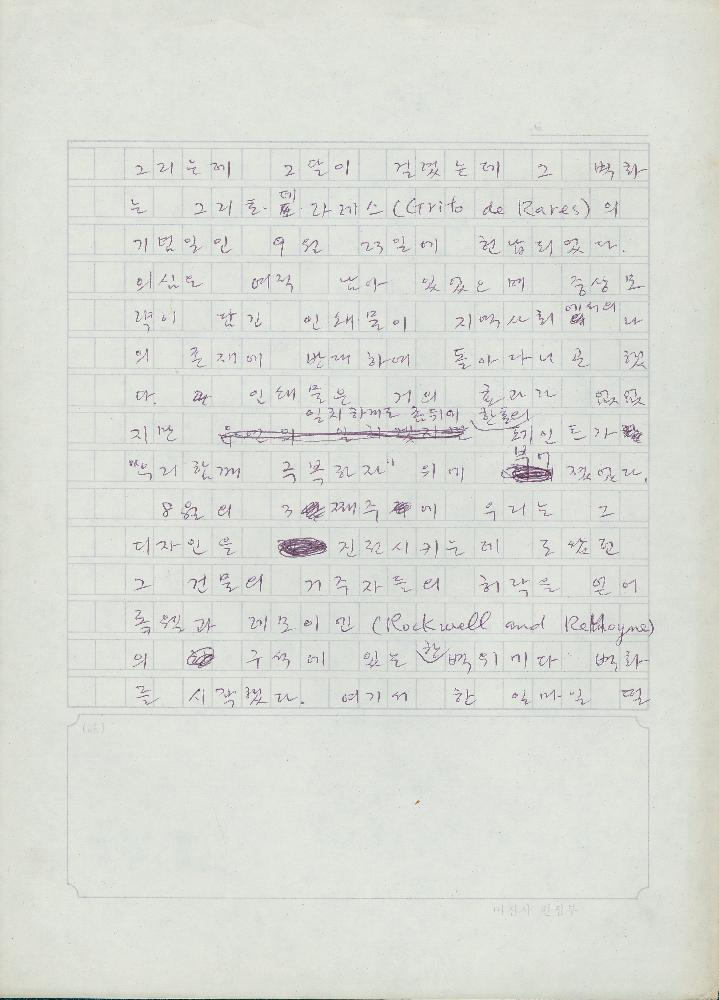 그리는데 2달이 걸렸는데 그 벽화
는 그리토·데·라레스(Grito de Rares)의
기념일인 9월 23일에 헌납되었다.
의심도 여직 남아 있었으며 중상모
략이 담긴 인쇄물이 지역사회에서의 나
의 존재에 반대하여 돌아다니곤 했
다. 인쇄물은 거의 효과가 없었
지만 일치하게도 손뒤에 한통의 페인트가
"우리 함께 극복하자" 위에 부어졌었다.
8월의 3째주에 우리는 그
디자인을 진전시키는데 도왔던
그 건물의 거주자들의 허락을 얻어
록웰과 레모이인 (Rockwell and ReMoyne)
의 구석에 있는 한 벽위에다 벽화
를 시작했다. 여기서 한 일마일 떨
미진사 편집부